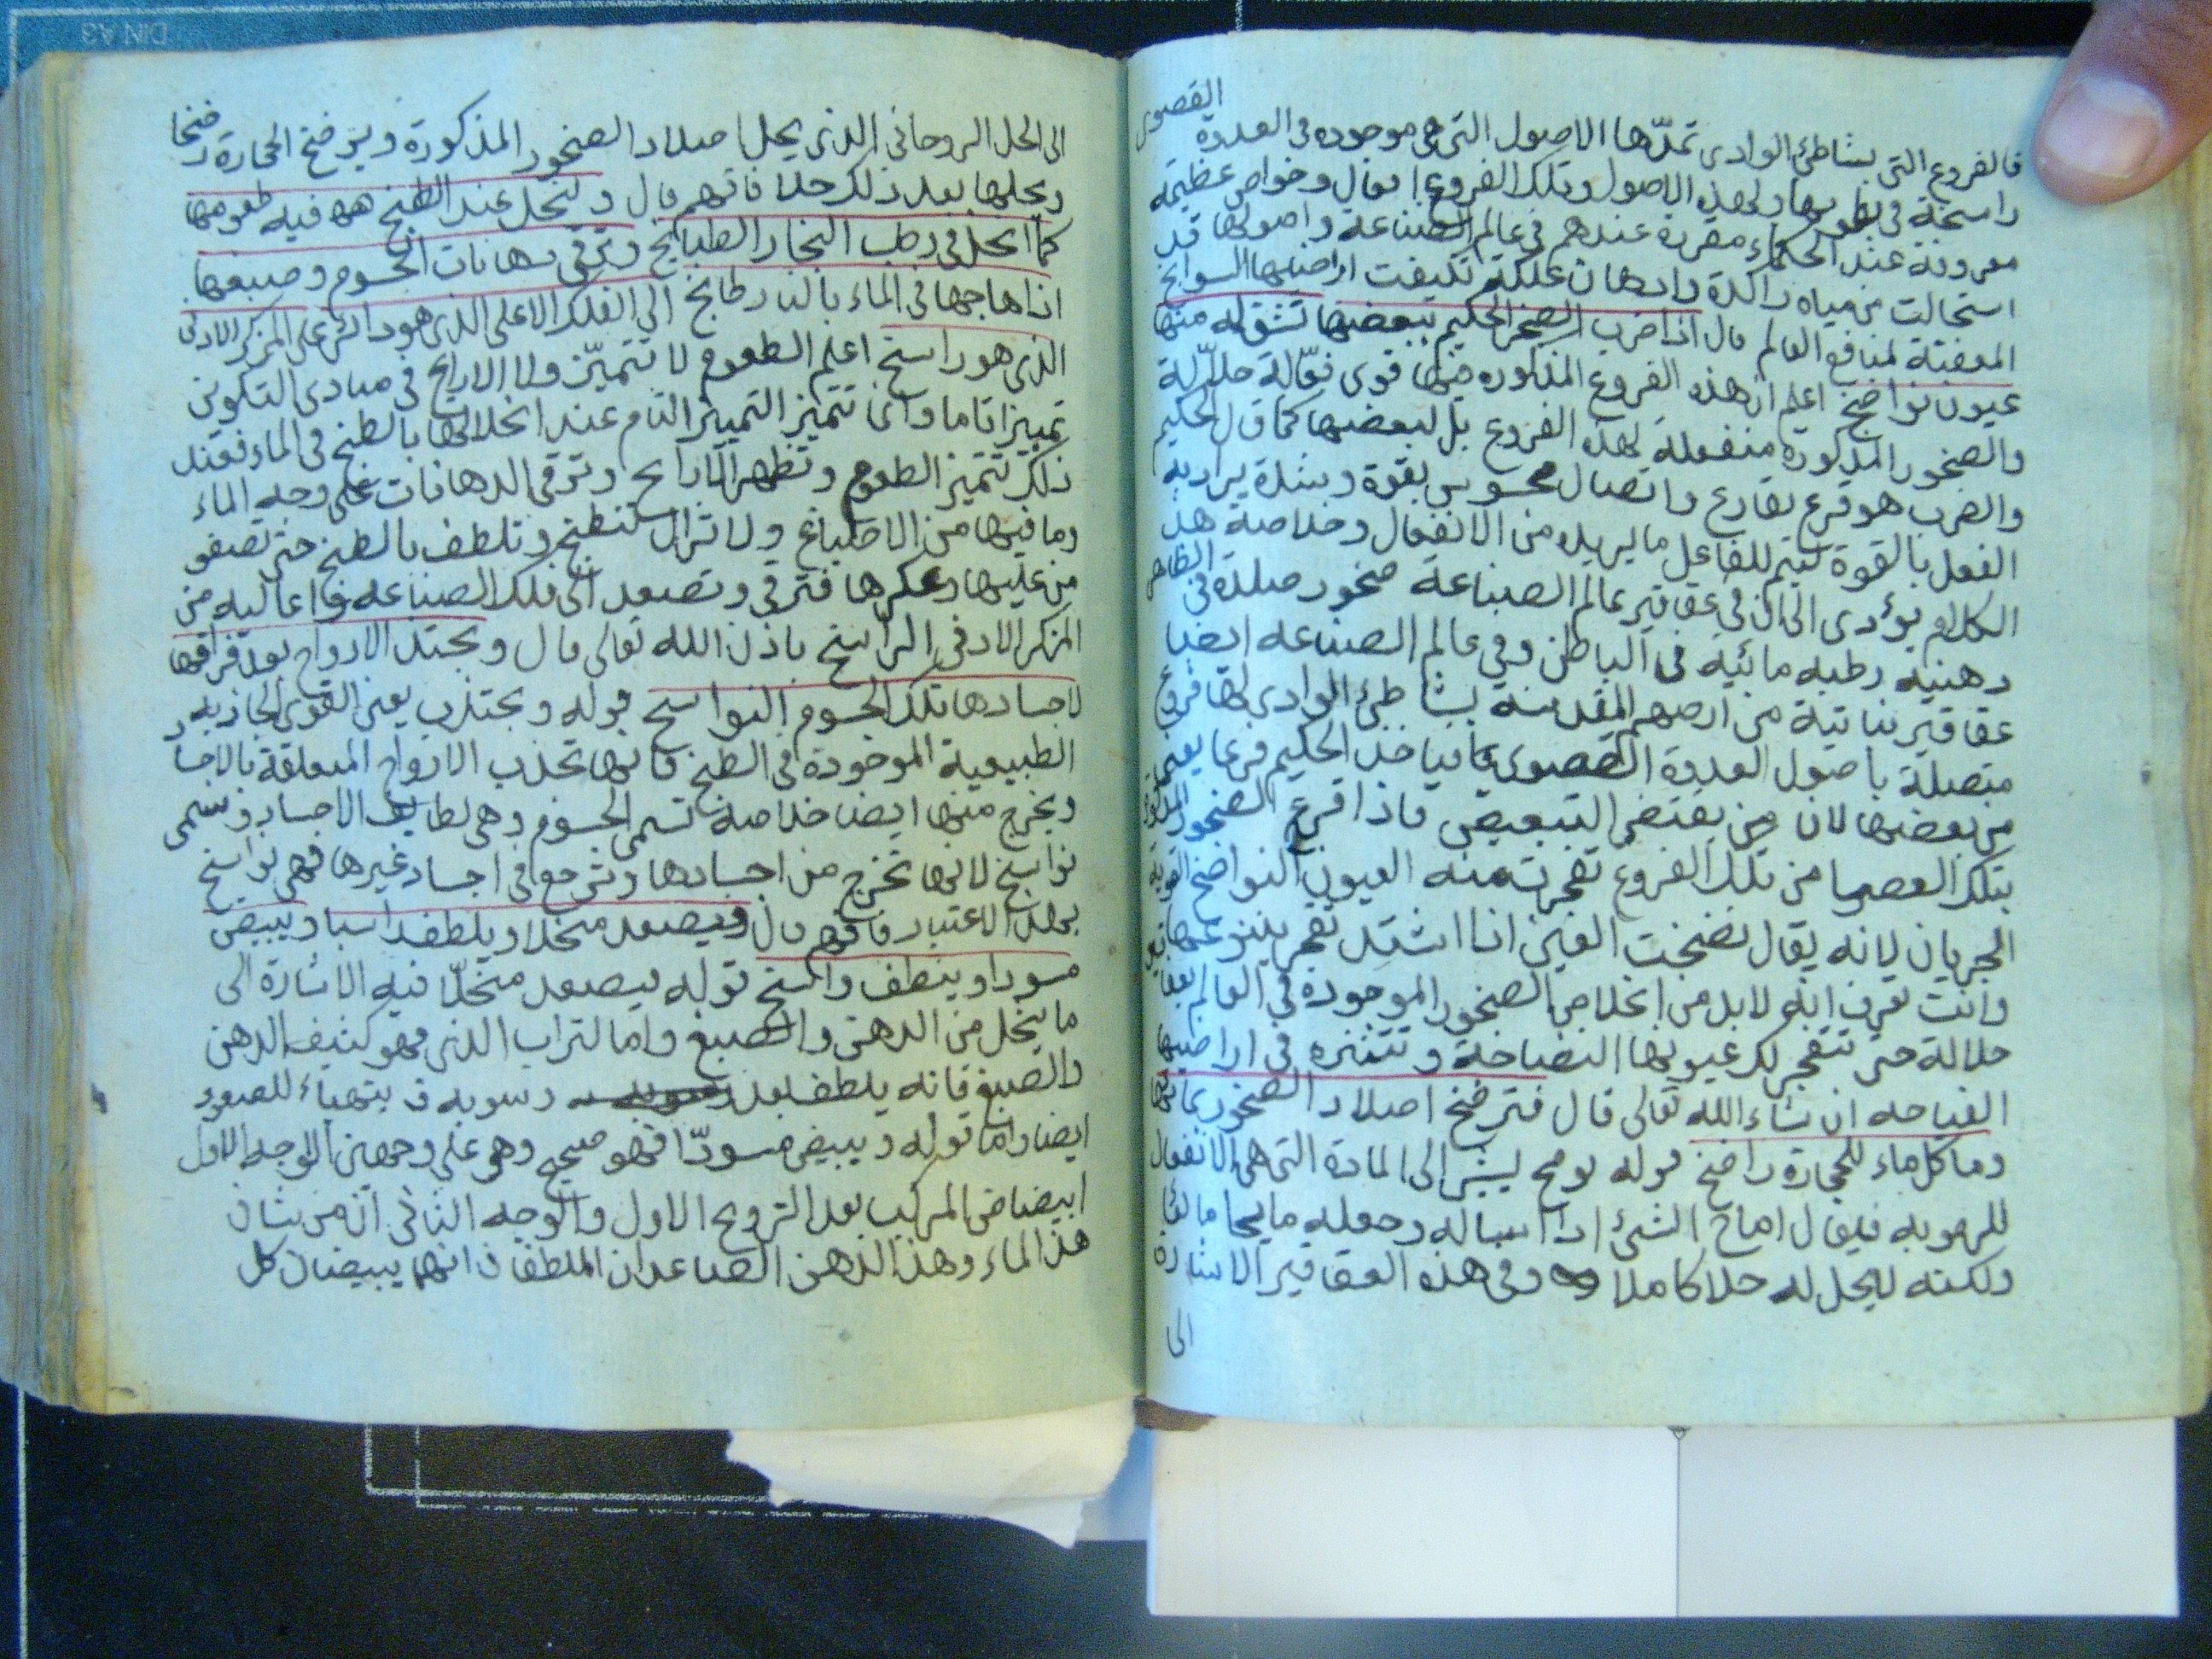 القصوى
فالفروع التى بشاطئ الوادى تمدّها الاصول التى هى موجوده فى العدوة
راسخة فى ولهذه الاصول وتلك الفروع افعال وخواص عظيمة
معروفة عند الحكماء مقررة عندهم فى عالم الصناعة واصولها قد
استحالت من مياه راكدة وادهان علكة تكيفت اراضيها السوابخ
المعفنة لمنافع العالم قال اذا ضرب الصخر الحكيم ببعضها تشق له منها
عيون نواضخ اعلم ان هذه الفروع المذكوره فيها قوى فعّالة حلّالة
والصخور المذكورة منفعلة لهذه الفروع بل لبعضها كما قال الحكيم
والضرب هو قرع بقارع واتصال محسوس بقوة وشدة يراد به
الفعل بالقوة ليتم للفاعل ما يريده من الانفعال وخلاصة هذا
الكلام يؤدى الى ان فى عقاقير عالم الصناعة صخور صلدة فى الظاهر
دهنية رطبه مائية فى الباطن وفى عالم الصناعه ايضا
عقاقير نباتية من ارضهم المقدسة بشاطئ الوادى لها فروع
متصلة باصول العدوة القصوى فياخذ الحكيم فرعا يعمله
من بعضها لان من يقتضى التبعيض فاذا قرع الصخور المذكورة
بتلك العصا من تلك الفروع تفجرت منه العيون النواضخ القوية
الجريان لانه يقال نضخت العين اذا اشتد تفجر ينبوعها
وانت تعرف انه لابد من اخلاص الصخور الموجودة فى العالم
حلالة حتى تتفجر لك عيونها النضاخة وتتنزه فى اراضيها
الفياحه ان شاء الله تعالى قال فترضخ اصلاد الصخور بمائها
وما كل ماء للحجارة راضخ قوله يشير الى المادة التى هى الانفعال
فيقال اماح الشئ اذا اساله وجعله مايحا
ولكنه لا يحل له حلا كاملا وفى هذه العقاقير الاشارة
الى
الى الحل الروحانى الذى يحل اصلاد الصخور المذكورة ويرضخ الحجارة رضخا
ويحلها بعد ذلك حلا فافهم قال وتنحل عند الطبخ فيه طعومها
كما انحل فى رطب البخار الطبايخ وترقى دهانات الجسوم وصبغها
اذا هاجها فى الماء بالنار طابخ الى الفلك الاعلى الذى هو دائر على المركز الادنى
الذى هو راسخ اعلم الطعوم لا تتميّز ولا الارايح فى مبادى التكوين
تمييزا تاما وانما تتميز التمييز التام عند انحلالها بالطبخ فى الماء فعند
ذلك تتميز الطعوم وتظهر الارايح وترقى الدهانات على وجه الماء
وما فيها من الاصباغ ولا تزال تنطبخ وتلطف بالطبخ حتى تصفو
من غلسها وعكرها فترقى وتصعد الى فلك الصناعه واعاليه من
المركز الادنى الراسخ باذن الله تعالى قال ويجتذب الارواح بعد فراقها
لاجسادها تلك الجسوم النواسخ قوله ويجتذب يعنى القوى الجاذبه
الطبيعية الموجودة فى الطبخ فانها تجذب الارواح المتعلقة بالاجساد
ويخرج منها ايضا خلاصة تسمى الجسوم وهى لطايف الاجساد وتسمى
نواسخ لانها تخرج من اجسادها وترجع فى اجساد غيرها فهى نواسخ
بهذا الاعتبار فافهم قال فيصعد منحلا ويلطف راسبا ويبيض
مسودا وينظف واسخ قوله فيصعد منحلّا فيه الاشارة الى
ما ينحل من الدهن والصبغ واما التراب الذى هو كثيف الدهن
والصبغ فانه يلطف بعد رسوبه يتهياء للصعود
ايضا واما قوله ويبيض مسودّا فهو صحيح وهو على وجهين الوجه الاول
ابيضاض المركب بعد التزويج الاول والوجه الثانى ان من شان
هذا الماء وهذا الدهن الصاعدان الملطفان انهما يبيضان كل